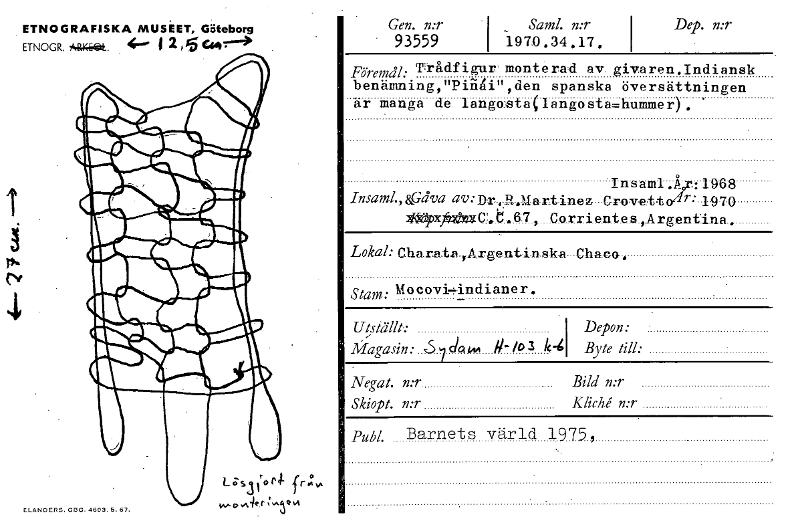 ETNOGRAFISKA MUSEET, Göteborg
ETNOGR. ARKEOL.
← 12,5 cm. →
← 27 cm. →
Lösgjort från
monteringen
ELANDERS, GBG. 4603. 5. 67.
Gen. n:r
93559
Saml. n:r
1970.34.17.
Dep. n:r
Föremål: Trådfigur monterad av givaren.Indiansk
benämning,"Piñái",den spanska översättningen
är manga de langosta(langosta=hummer).
Insaml.År:1968
Insaml.,&Gåva av: Dr.R.Martinez Crovetto År: 1970
C.C.67, Corrientes,Argentina.
Lokal: Charata,Argentinska Chaco.
Stam: Mocovi-indianer.
Utställt:
Depon:
Magasin: Sydam H-103 k-6
Byte till:
Negat. n:r
Bild n:r
Skiopt. n:r
Kliché n:r
Publ. Barnets värld 1975,